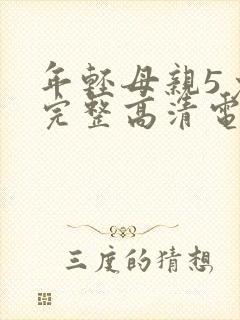 年轻母親5
完整高清電
三度的猜想